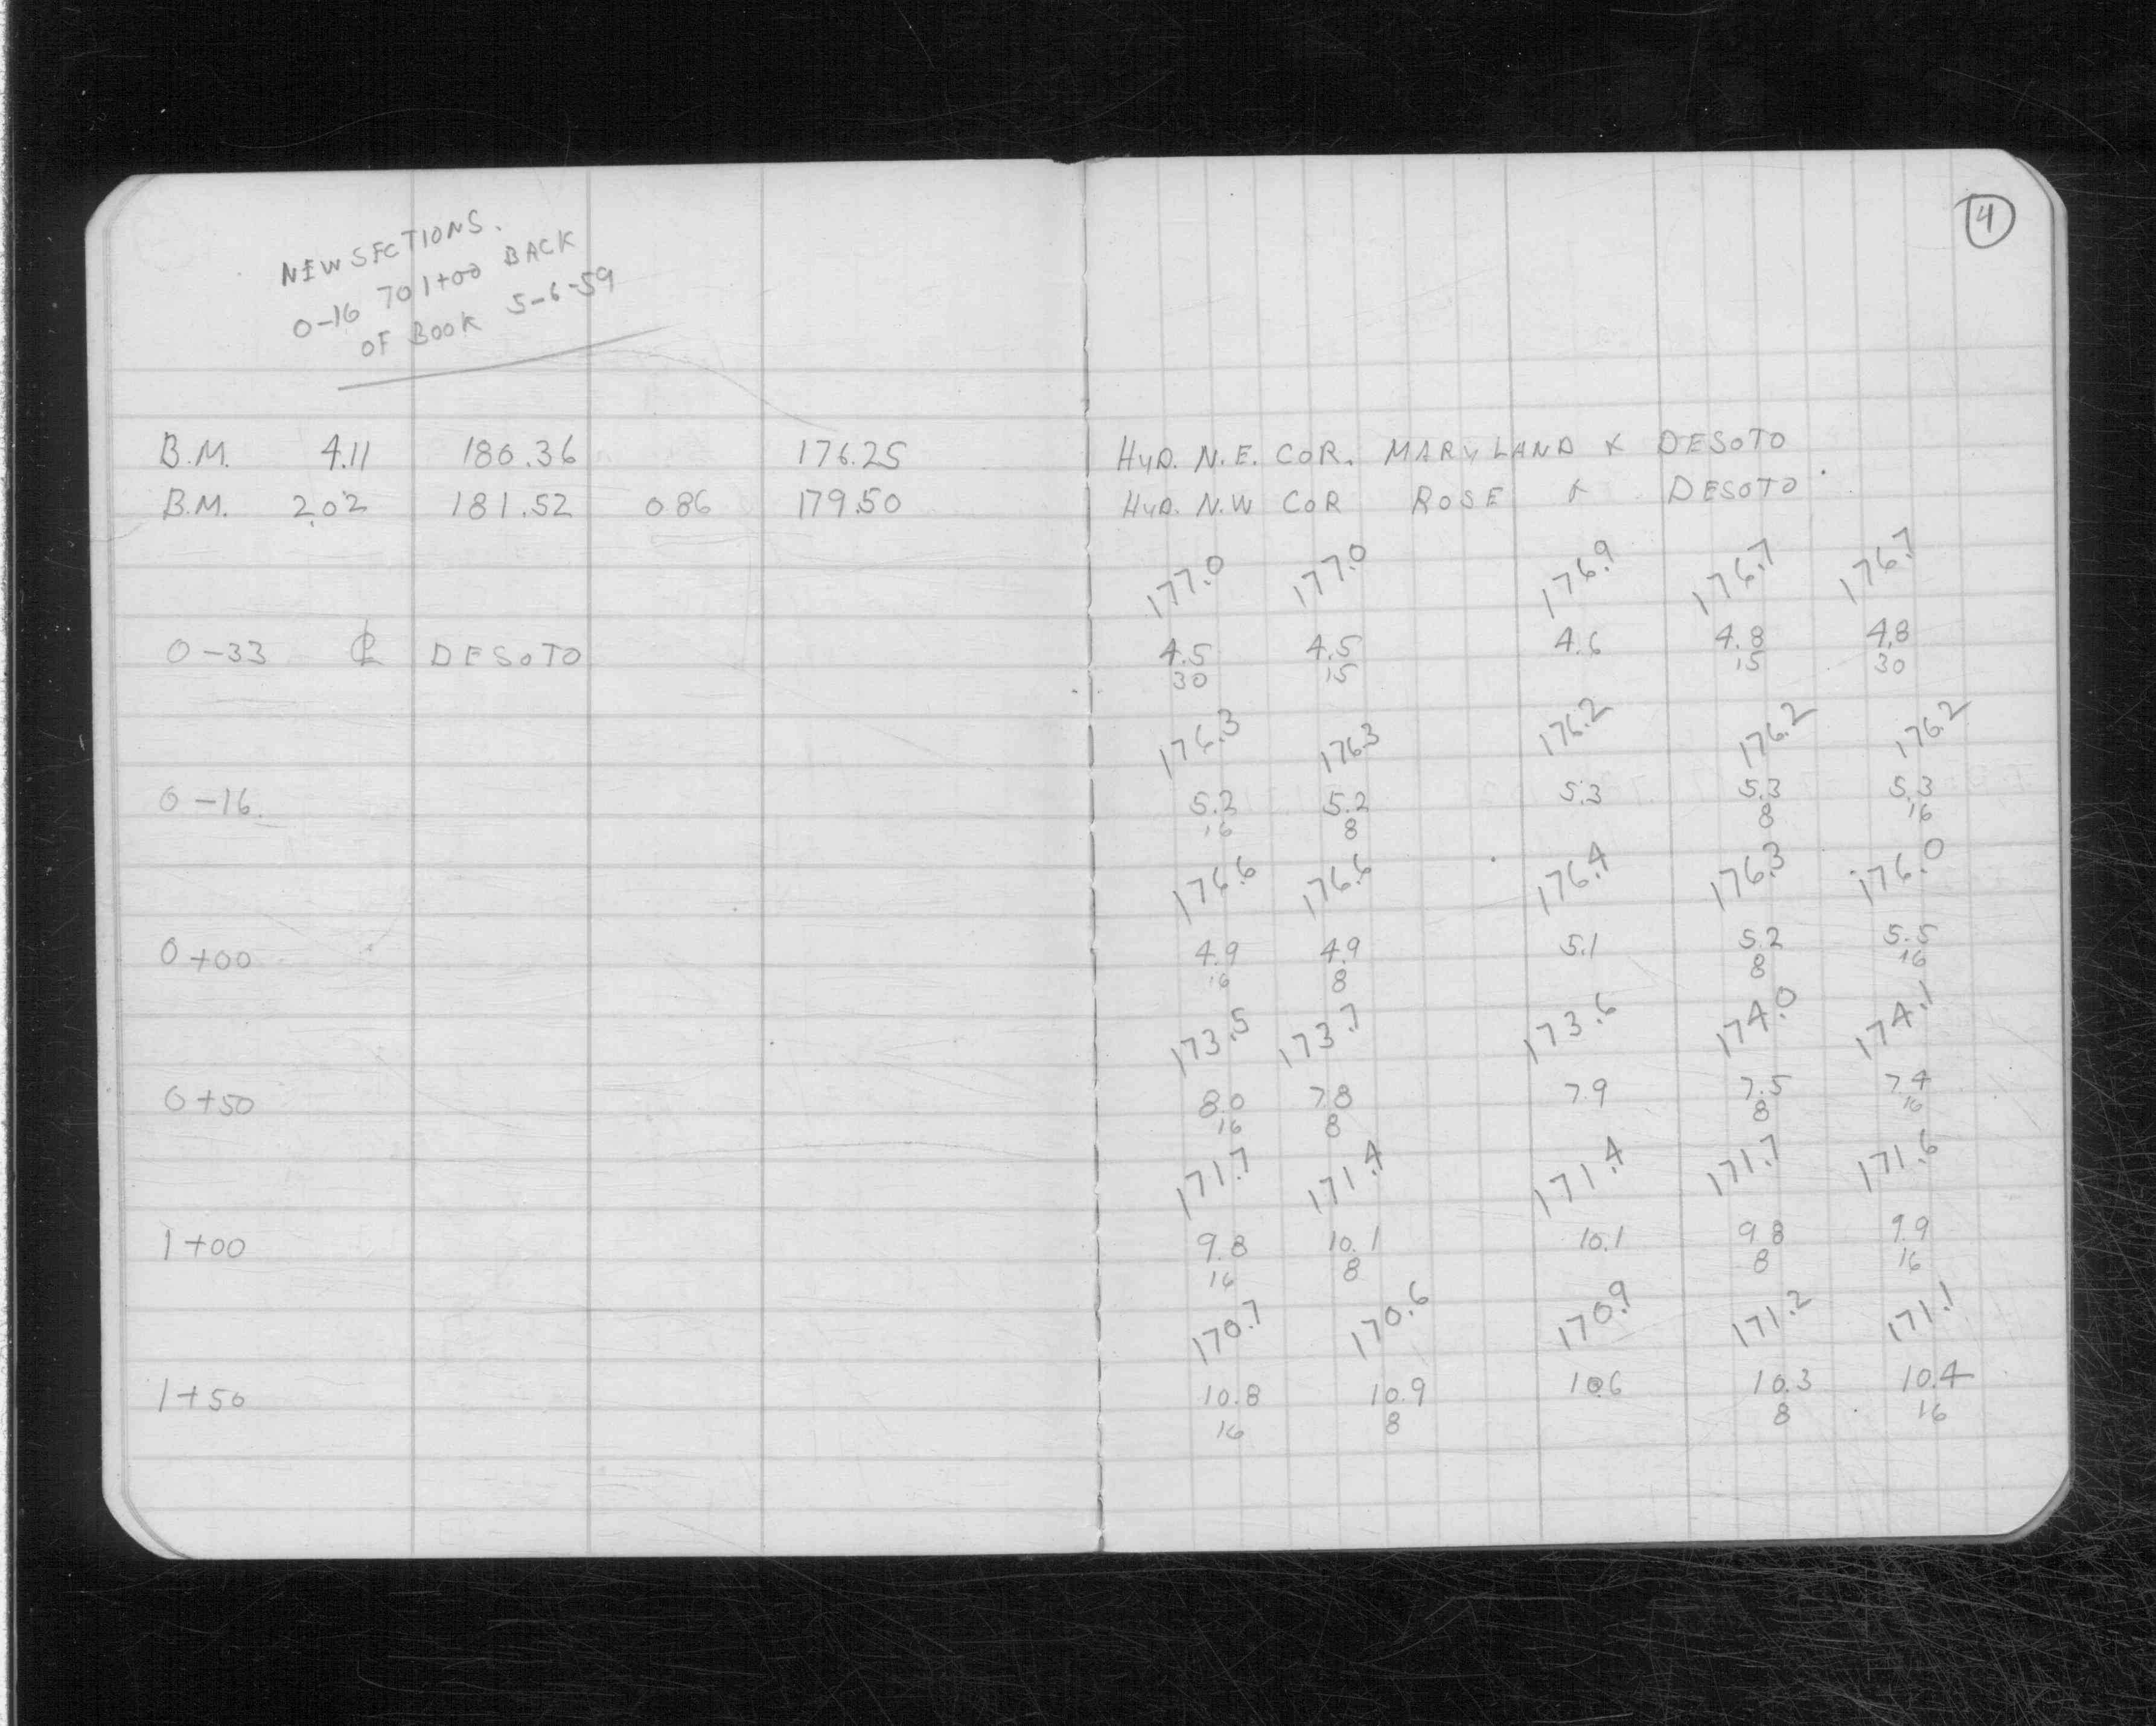 NEW SECTIONS.
0-16 TO 1+00 BACK
OF BOOK 5-6-59
4
B.M. 4.11 180.36 176.25 HYD. N.E. COR. MARYLAND & DESOTO
B.M. 2.02 181.52 0.86 179.50 HYD. N.W COR ROSE & DESOTO
177.0 177.0 176.9 176.7 176.7
0-33 ℄ DESOTO 4.5 4.5 4.6 4.8 4.8
30 15 15 30
176.3 176.3 176.2 176.2 176.2
0-16 5.2 5.2 5.3 5.3 5.3
16 8 8 16
176.6 176.6 176.4 176.3 176.0
0+00 4.9 4.9 5.1 5.2 5.5
16 8 8 16
173.5 173.7 173.6 174.0 174.1
0+50 8.0 7.8 7.9 7.5 7.4
16 8 8 16
171.7 171.4 171.4 171.7 171.6
1+00 9.8 10.1 10.1 9.8 9.9
16 8 8 16
170.7 170.6 170.9 171.2 171.1
1+50 10.8 10.9 10.6 10.3 10.4
16 8 8 16